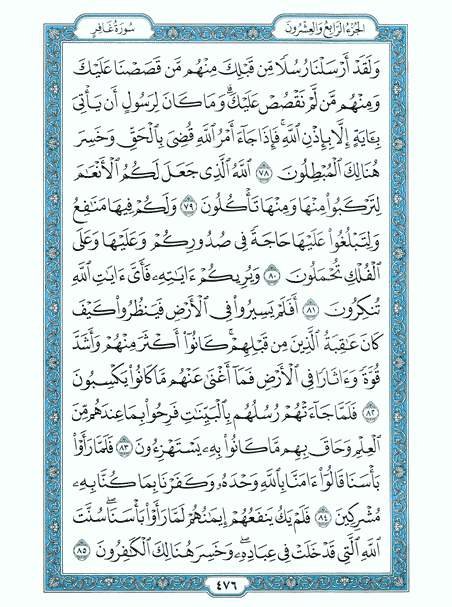 سُورَةُ غَافِرٍ
الجُزْءُ الرَّابِعُ وَالعِشْرُونَ
وَلَقَدۡ أَرۡسَلۡنَا رُسُلٗا مِّن قَبۡلِكَ مِنۡهُم مَّن قَصَصۡنَا عَلَيۡكَ
وَمِنۡهُم مَّن لَّمۡ نَقۡصُصۡ عَلَيۡكَۗ وَمَا كَانَ لِرَسُولٍ أَن يَأۡتِيَ
بِـَٔايَةٍ إِلَّا بِإِذۡنِ ٱللَّهِۚ فَإِذَا جَآءَ أَمۡرُ ٱللَّهِ قُضِيَ بِٱلۡحَقِّ وَخَسِرَ
هُنَالِكَ ٱلۡمُبۡطِلُونَ ٧٨ ٱللَّهُ ٱلَّذِي جَعَلَ لَكُمُ ٱلۡأَنۡعَٰمَ
لِتَرۡكَبُواْ مِنۡهَا وَمِنۡهَا تَأۡكُلُونَ ٧٩ وَلَكُمۡ فِيهَا مَنَٰفِعُ
وَلِتَبۡلُغُواْ عَلَيۡهَا حَاجَةٗ فِي صُدُورِكُمۡ وَعَلَيۡهَا وَعَلَى
ٱلۡفُلۡكِ تُحۡمَلُونَ ٨٠ وَيُرِيكُمۡ ءَايَٰتِهِۦ فَأَيَّ ءَايَٰتِ ٱللَّهِ
تُنكِرُونَ ٨١ أَفَلَمۡ يَسِيرُواْ فِي ٱلۡأَرۡضِ فَيَنظُرُواْ كَيۡفَ
كَانَ عَٰقِبَةُ ٱلَّذِينَ مِن قَبۡلِهِمۡۚ كَانُوٓاْ أَكۡثَرَ مِنۡهُمۡ وَأَشَدَّ
قُوَّةٗ وَءَاثَارٗا فِي ٱلۡأَرۡضِ فَمَآ أَغۡنَىٰ عَنۡهُم مَّا كَانُواْ يَكۡسِبُونَ
٨٢ فَلَمَّا جَآءَتۡهُمۡ رُسُلُهُم بِٱلۡبَيِّنَٰتِ فَرِحُواْ بِمَا عِندَهُم مِّنَ
ٱلۡعِلۡمِ وَحَاقَ بِهِم مَّا كَانُواْ بِهِۦ يَسۡتَهۡزِءُونَ ٨٣ فَلَمَّا رَأَوۡاْ
بَأۡسَنَا قَالُوٓاْ ءَامَنَّا بِٱللَّهِ وَحۡدَهُۥ وَكَفَرۡنَا بِمَا كُنَّا بِهِۦ
مُشۡرِكِينَ ٨٤ فَلَمۡ يَكُ يَنفَعُهُمۡ إِيمَٰنُهُمۡ لَمَّا رَأَوۡاْ بَأۡسَنَاۖ سُنَّتَ
ٱللَّهِ ٱلَّتِي قَدۡ خَلَتۡ فِي عِبَادِهِۦۖ وَخَسِرَ هُنَالِكَ ٱلۡكَٰفِرُونَ ٨٥
٤٧٦